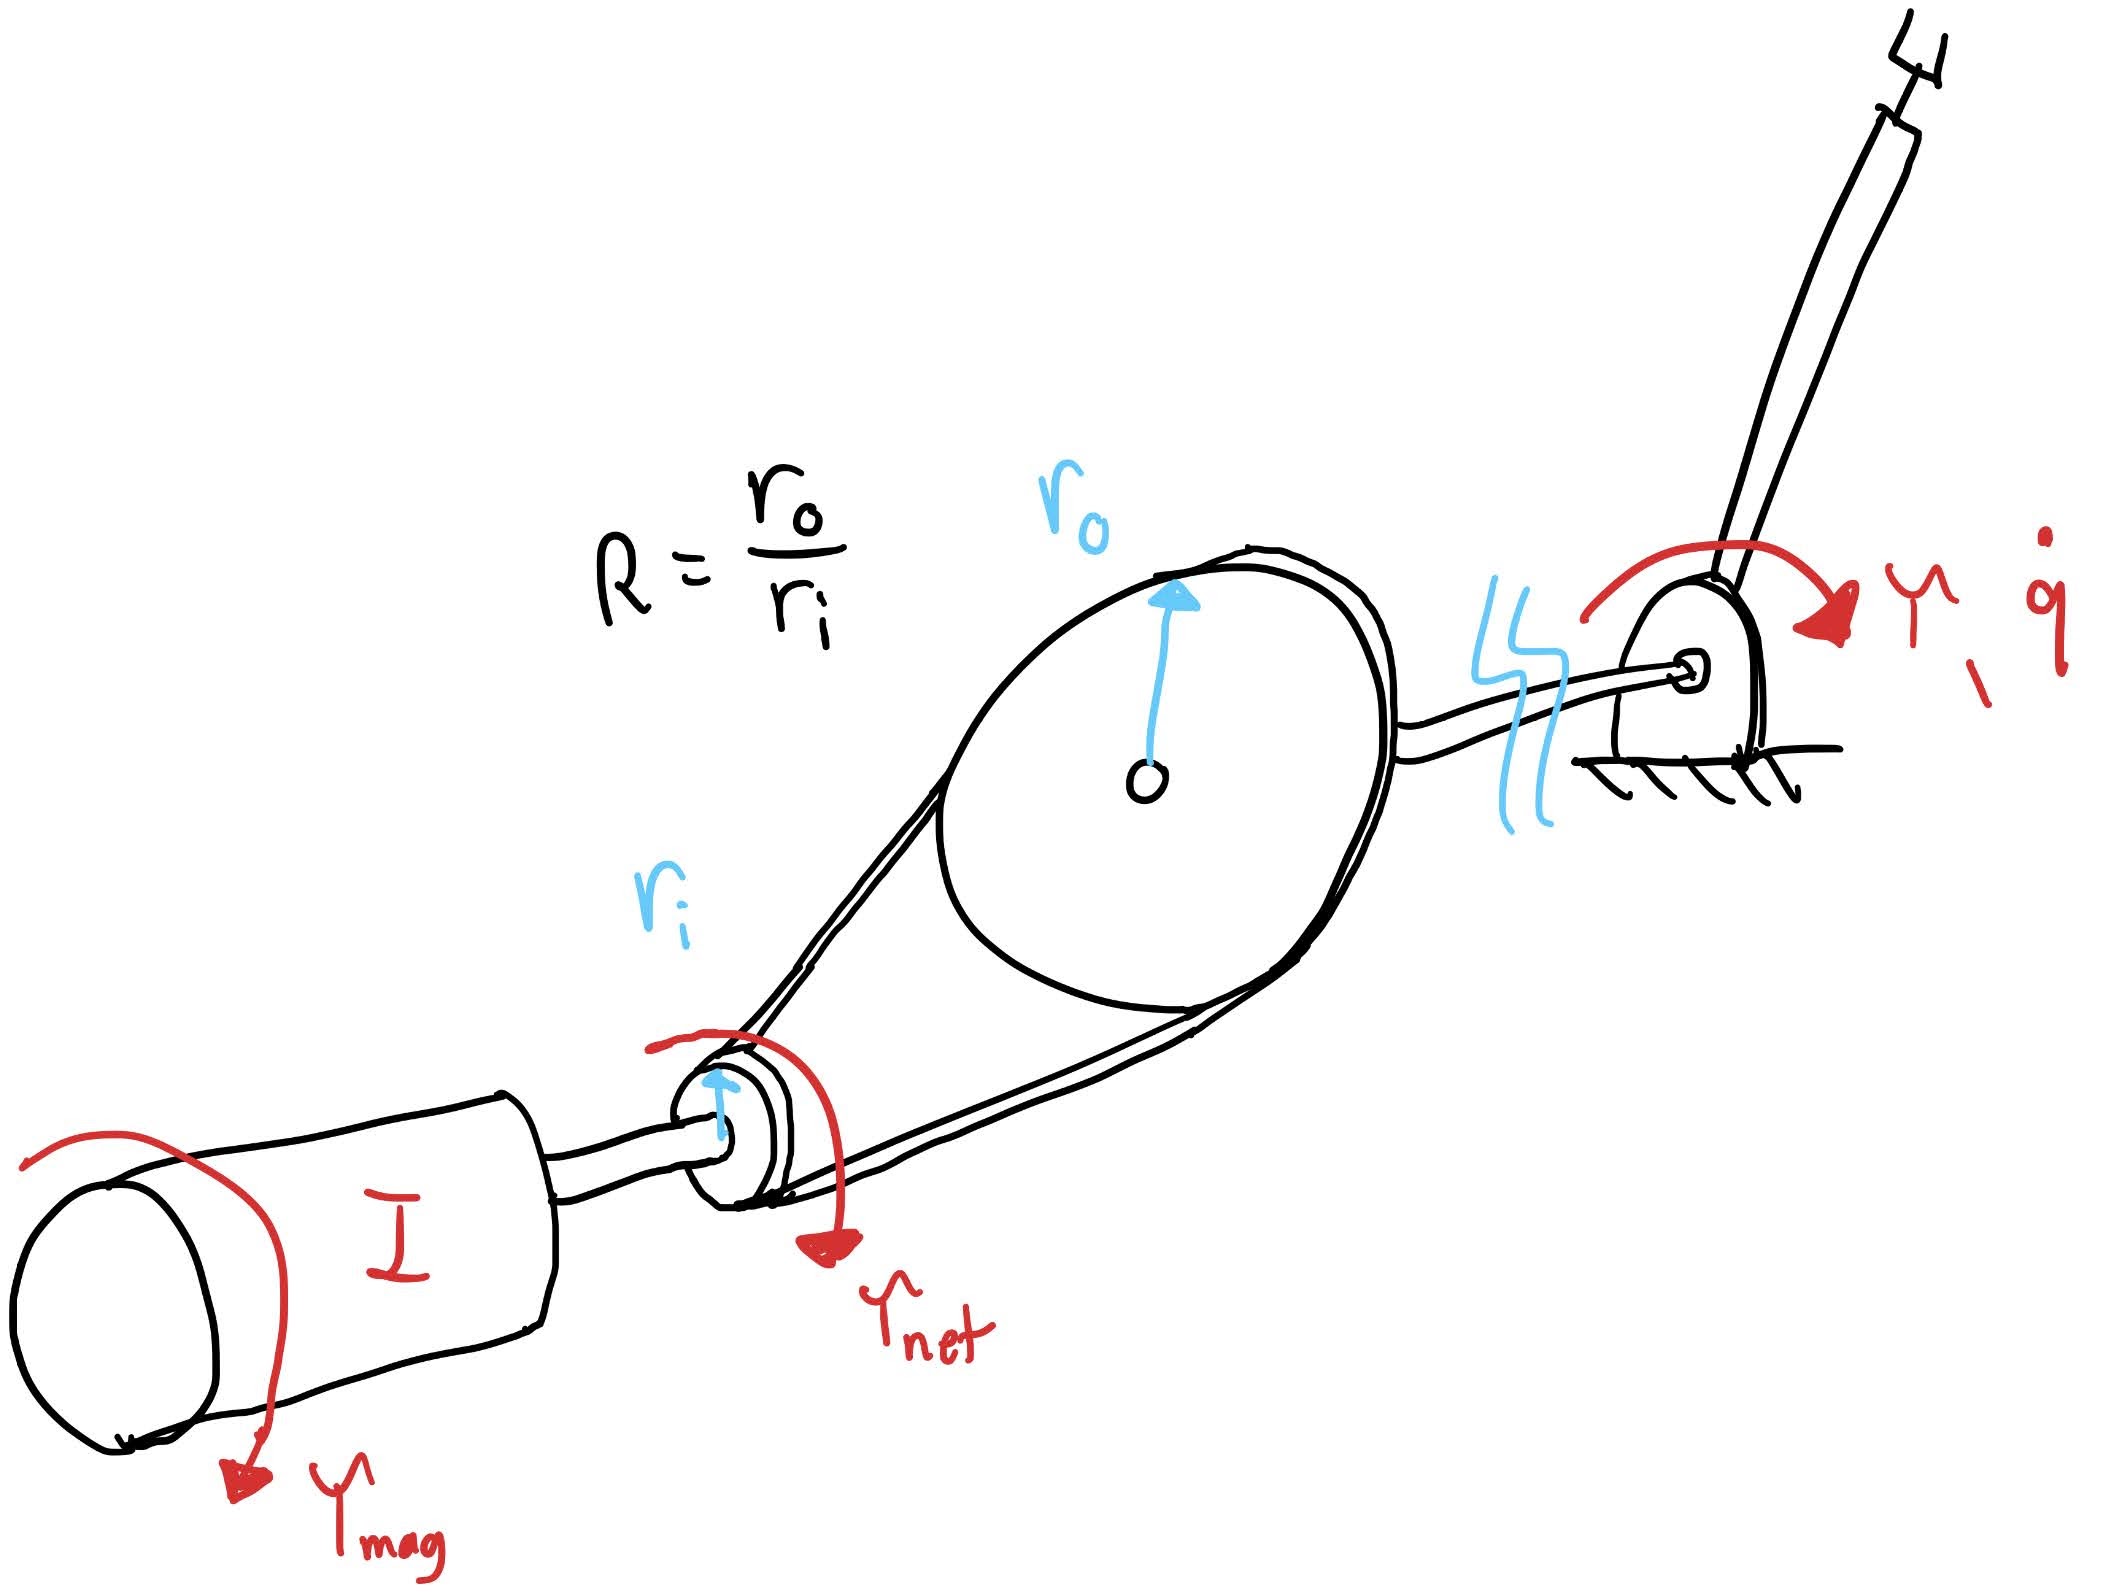 R = r_o / r_i
r_o
τ, q̇
r_i
I
τ_net
τ_mag